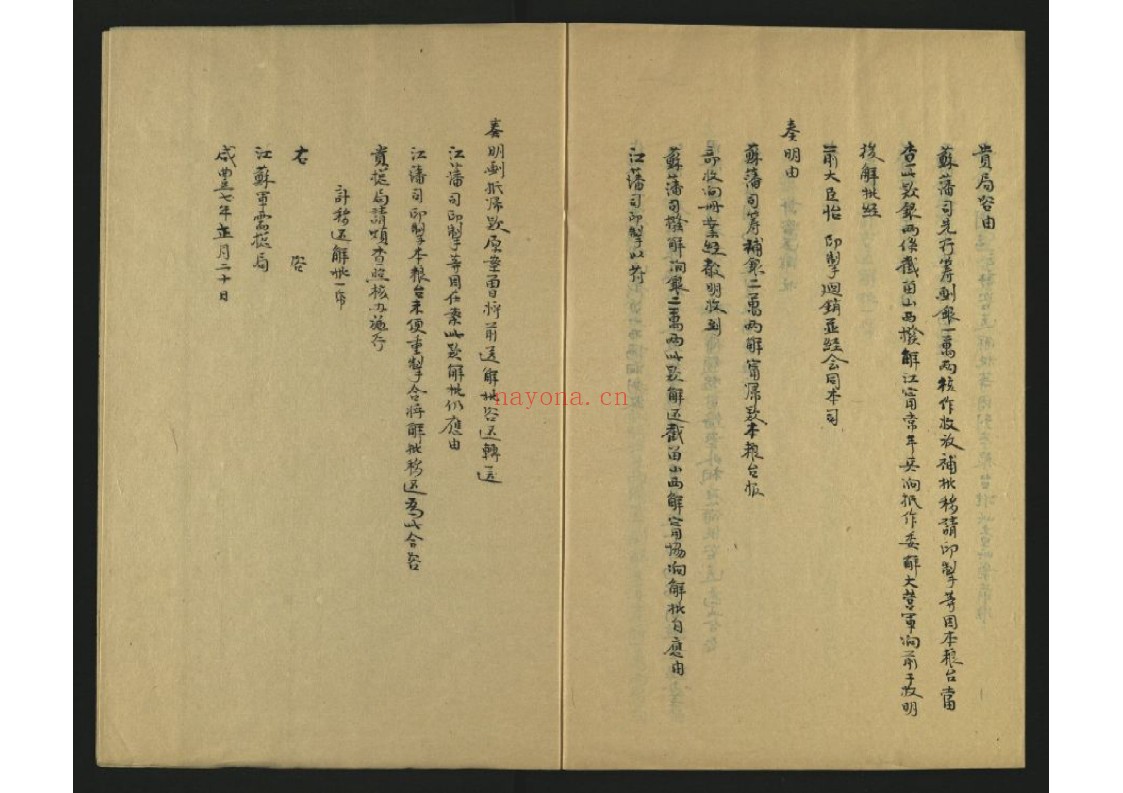 貴局咨由
蘇藩司先行籌劃銀一萬兩核作收放補批移請印掣等因本粮台當
查此款銀兩係截留山西撥解江甯常年兵餉抵作委解大营軍餉前于收明
後解批經
前大臣怡 印掣廻銷並經会同本司
奏明由
蘇藩司籌補銀二萬兩解甯歸款本粮台版
蘇藩司撥解餉銀二萬兩此款解还截留山西解甯協餉解批自應由
江藩司印掣以符
奏明劃抵歸款原案曾將前送解批咨还轉送
江藩司印掣等因在案此款解批仍應由
江藩司印掣本粮台未便重掣合將解批移还為此合咨
貴捴局請煩查照核办施行
計移还解批一帋
右 咨
江蘇軍需捴局
咸豐七年 正月二十日
nayona.cn